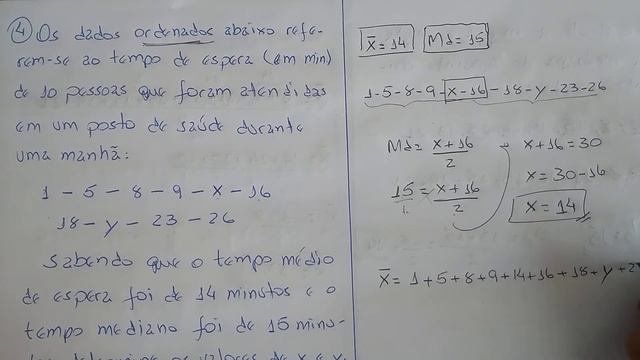 ④ Os dados ordenados abaixo refe-
rem-se ao tempo de espera (em min)
de 10 pessoas que foram atendidas
em um posto de saúde durante
uma manhã:
1 - 5 - 8 - 9 - x - 16
18 - y - 23 - 26
Sabendo que o tempo médio
de espera foi de 14 minutos e o
tempo mediano foi de 15 minu-
x̄ = 14 Md = 15
1-5-8-9-x-16-18-y-23-26
Md = x+16/2
15/1 = x+16/2
x+16=30
x = 30-16
x = 14
x̄ = 1+5+8+9+14+16+18+y+2